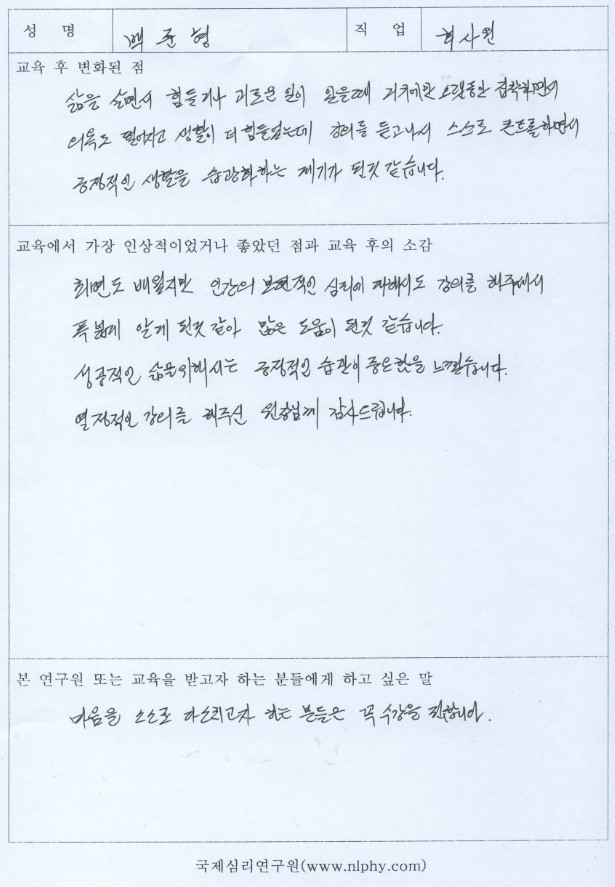 성 명 백준형 직 업 회사원
교육 후 변화된 점
삶을 살면서 힘들거나 괴로운 일이 있을때 거기에만 오랫동안 집착하면서
의욕도 떨어지고 생활이 더 힘들었는데 강의를 듣고나서 스스로 콘트롤하면서
긍정적인 생활을 습관화하는 계기가 된것 같습니다.
교육에서 가장 인상적이었거나 좋았던 점과 교육 후의 소감
최면도 배웠지만 인간의 보편적인 심리에 대해서도 강의를 해주셔서
폭넓게 알게 된것 같아 많은 도움이 된것 같습니다.
성공적인 삶을위해서는 긍정적인 습관이 중요한을 느꼈습니다.
열정적인 강의를 해주신 원장님께 감사드립니다.
본 연구원 또는 교육을 받고자 하는 분들에게 하고 싶은 말
마음을 스스로 다스리고자 하는 분들은 꼭 수강을 권합니다.
국제심리연구원(www.nlphy.com)